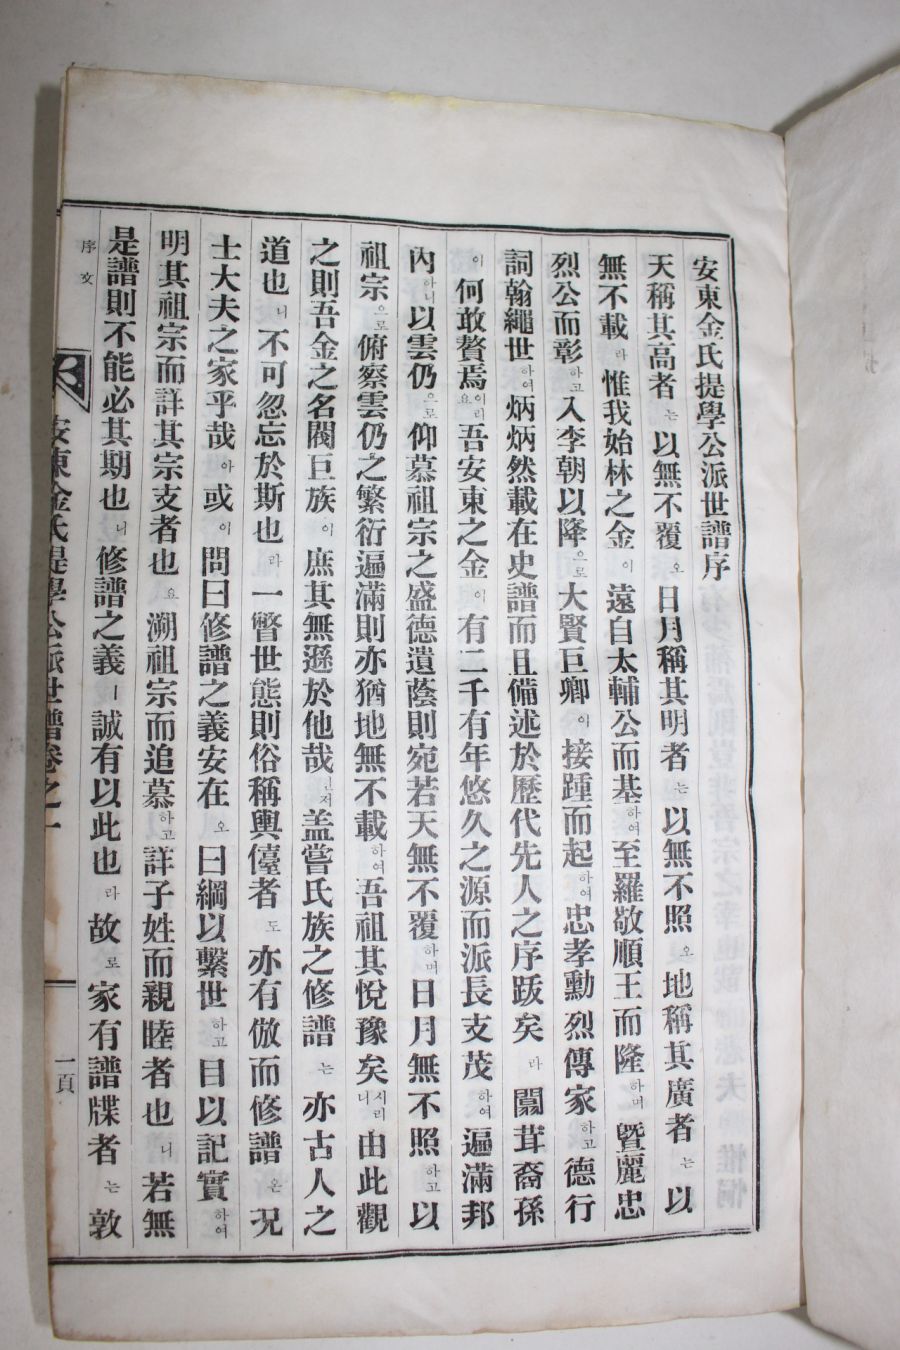 安東金氏提學公派世譜序
天稱其高者는以無不覆오日月稱其明者는以無不照오地稱其廣者는以
無不載라惟我始林之金이遠自太輔公而基하여至羅敬順王而隆하며曁麗忠
烈公而彰하고入李朝以降으로大賢巨卿이接踵而起하여忠孝勳烈傳家하고德行
詞翰繩世하여炳炳然載在史譜而且備述於歷代先人之序跋矣라闒茸裔孫
이何敢贅焉이리요吾安東之金이有二千有年悠久之源而派長支茂하여遍滿邦
內아니以雲仍으로仰慕祖宗之盛德遺蔭則宛若天無不覆하며日月無不照하고以
祖宗으로俯察雲仍之繁衍遍滿則亦猶地無不載하여吾祖其悅豫矣시리니由此觀
之則吾金之名閥巨族이庶其無遜於他哉인저盖嘗氏族之修譜는亦古人之
道也니不可忽忘於斯也라一瞥世態則俗稱輿儓者도亦有倣而修譜온况
士大夫之家乎哉아或이問曰修譜之義安在오曰綱以繫世하고目以記實하여
明其祖宗而詳其宗支者也요溯祖宗而追慕하고詳子姓而親睦者也니若無
是譜則不能必其期也니修譜之義ㅣ誠有以此也라故로家有譜牒者는敦
序文
安東金氏提學公派世譜卷之一
一頁